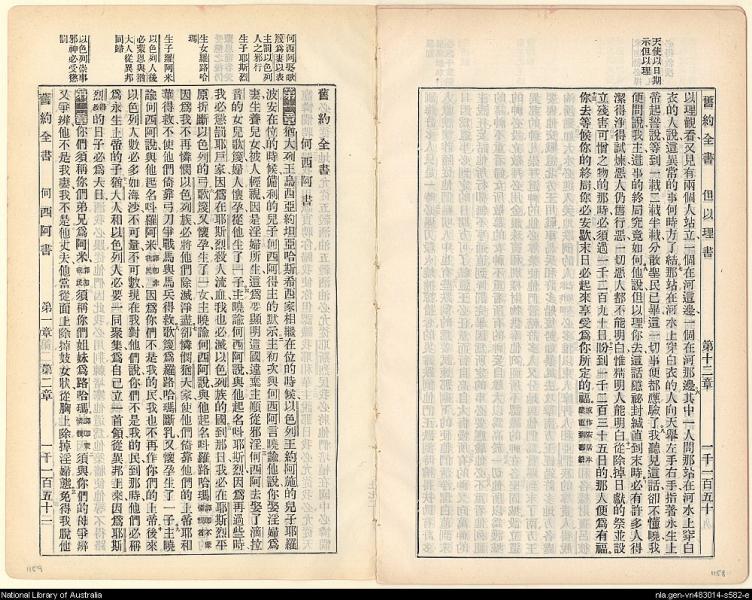 舊約全書 但以理書 第十二章 一千一百五十
天使以日期
示但以理
以理觀看又見有兩個人站立一個在河這邊一個在河那邊其中一人問那站在河水上穿白
衣的人說這異常的事何時方了結那站在河水上穿白衣的人向天舉左手右手指著永生主
常起誓說等到一載二載半載分散聖民已畢這一切事便都應驗了我聽見這話卻不懂曉我
便問說我主這事的終局究竟如何他說但以理你去這話隱祕封緘直到末時必有許多人得
潔得淨得試煉惡人仍舊行惡一切惡人都不能明白惟精明人能明白從除掉日獻的祭並設
立殘害可憎之物的那時必須過一千二百九十日盼到一千三百三十五日的那人便為有福
你去等候你的終局你必安歇末日必起來享受為你所定的福
1158
舊約全書
何西阿書
何西阿娶歌
篾為妻以表
主罰以色列
人之邪行
生子耶斯烈
生女羅路哈
瑪
生子羅阿米
以色列人後
必蒙恩與猶
大人從異邦
同歸
以色列崇事
邪神必受懲
第一章 猶大列王烏西亞約坦亞哈斯希西家相繼在位的時候以色列王約阿施的兒子耶羅
波安在位的時候備利的兒子何西阿得主的默示主初次與何西阿言曉諭他說你娶淫婦為
妻生養兒女被人輕視是淫婦所生這為要顯明這國遠棄主順從邪淫何西阿去娶了滴拉
音的女兒歌篾婦人懷孕從他生了一子主曉諭何西阿說與他起名叫耶斯烈因為再過些時
我必懲罰耶戶家因為在耶斯烈殺人流血我也必滅以色列族的國到那日我必在耶斯烈平
原折斷以色列的弓歌篾又懷孕生了一女主曉諭何西阿說與他起名叫羅路哈瑪
因為我不再憐憫以色列族必將他們除滅淨盡卻憐憫猶大家使他們倚靠他們的主上帝耶和
華得救不使他們倚靠弓刀爭戰馬與馬兵得救歌篾為羅路哈瑪斷乳又懷孕生了一子主曉
諭何西阿說與他起名叫羅阿米 因為你們不是我的民我也不再作你們的上帝後來
以色列人數必多如海沙不可量不可數現在我對他們說你們不是我的民到那時他們必稱
為永生上帝的子猶大人和以色列人必要一同聚集為自己立一首領從異邦上來因為耶斯
烈的日子必為大日
第二章 你們須稱你們弟兄為阿米 須稱你們姐妹為路哈瑪 須與你們的母爭辨
又爭辨他不是我妻我不是他丈夫他當從面上除掉妓女狀從胸上除掉淫婦態免得我脫他
舊約全書 何西阿書 第一章 第二章 一千一百五十二
1159
National Library of Australia
nla.gen-vn483014-s582-e